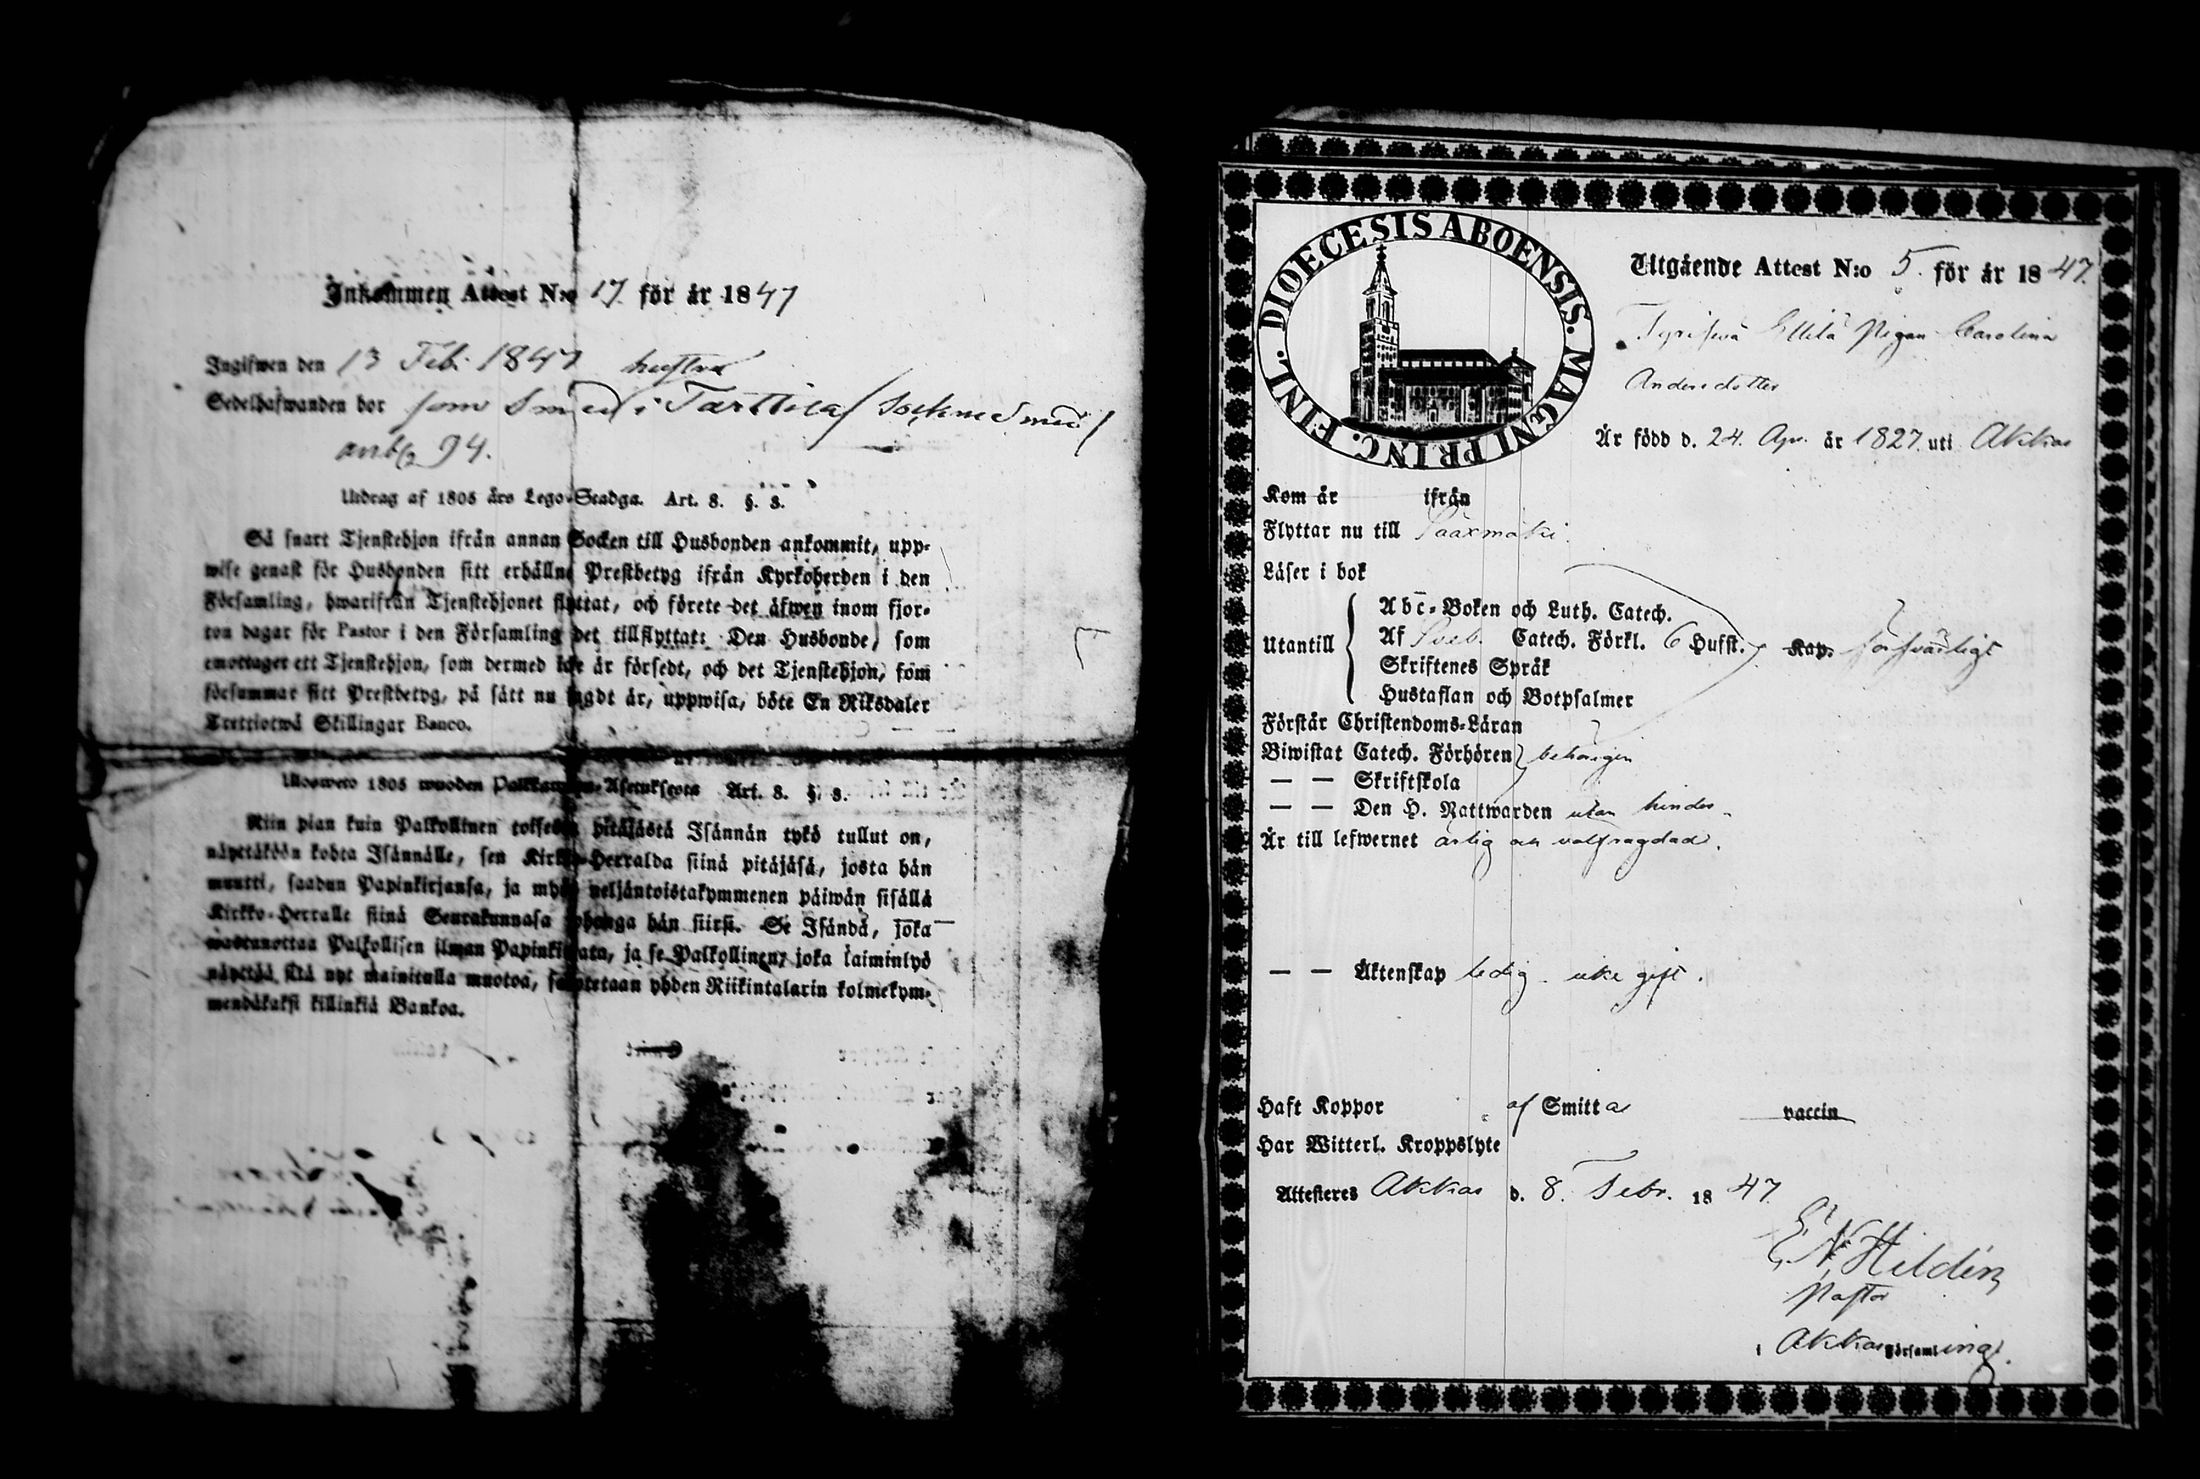 Inkommen Attest N:o 17. för år 1847
Ingifwen den 13 Feb. 1847 hustru
Sedelhafwanden bor som Smed i Tarttila Socknesmed
anbg 94.
Utdrag af 1805 års Lego-Stadga. Art. 8. §. 3.
Så snart Tjenstehjon ifrån annan Socken till Husbonden ankommit, upp-
wise genast för Husbonden sitt erhållne Prestbetyg ifrån Kyrkoherden i den
Församling, hwarifrån Tjenstehjonet flyttat, och förete det äfwen inom fjor-
ton dagar för Pastor i den Församling det tillflyttat: Den Husbonde, som
emottaget ett Tjenstehjon, som dermed icke är försedt, och det Tjenstehjon, som
försummar sitt Prestbetyg, på sätt nu sagdt är, uppwisa, böte En Riksdaler
Trettiotwå Skillingar Banco.
Ulosweto 1805 wuoden Palkkawäen-Asetuksesta Art. 8. §. 3.
Niin pian kuin Palkollinen toisesta pitäjästä Isännän tykö tullut on,
näyttäköön kohta Isännälle, sen Kirkko-Herralda siinä pitäjäsä, josta hän
muutti, saadun Papinkirjansa, ja myös neljäntoistakymmenen päiwän sisällä
Kirkko-Herralle siinä Seurakunnasa johonga hän siirsi. Se Isändä, joka
wastanottaa Palkollisen ilman Papinkirjata, ja se Palkollinen, joka laiminlyö
näyttää sitä nyt mainitulla muotoa, sakotetaan yhden Riikintalarin kolmekym-
mendäkaksi killinkiä Bankoa.
DIOECESIS ABOENSIS. MAGNI PRINC. FINL.
Utgående Attest N:o 5. för år 1847.
Tyrisevä Ellilä Pigan Carolina
Andersdotter
Är född d. 24. Apr. år 1827. uti Akkas
Kom år ifrån
Flyttar nu till Sääxmäki.
Läser i bok
Utantill
Abc-Boken och Luth. Catech.
Af Sveb. Catech. Förkl. 6 Hufst. Kap. försvarligt
Skriftenes Språk
Hustaflan och Botpsalmer
Förstår Christendoms-Läran
Biwistat Catech. Förhören behörigen
— — Skriftskola
— — Den H. Nattwarden utan hinder.
Är till lefwernet ärlig och välfrägdad.
— — Äktenskap ledig. icke gift.
Haft Koppor af Smittas vaccin
Har Witterl. Kroppslyte
Attesteres Akkas d. 8. Febr. 1847.
E. N. Hildén
Pastor
i Akkas Församling.